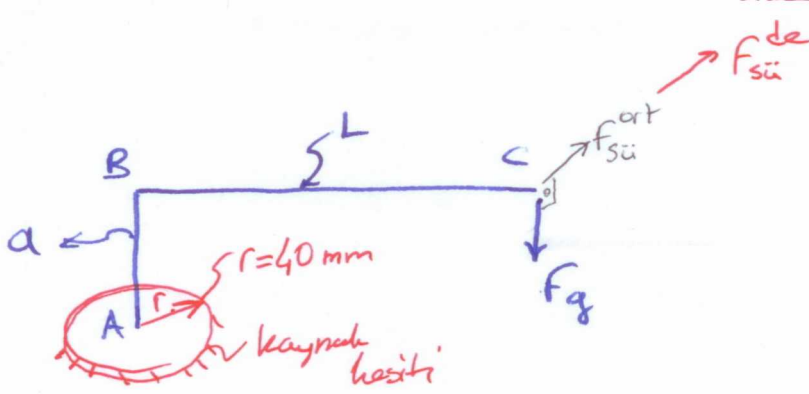 F_sü^de
F_sü^ort
L
B
C
a
r=40 mm
F_g
A
r
kaynak
kesiti